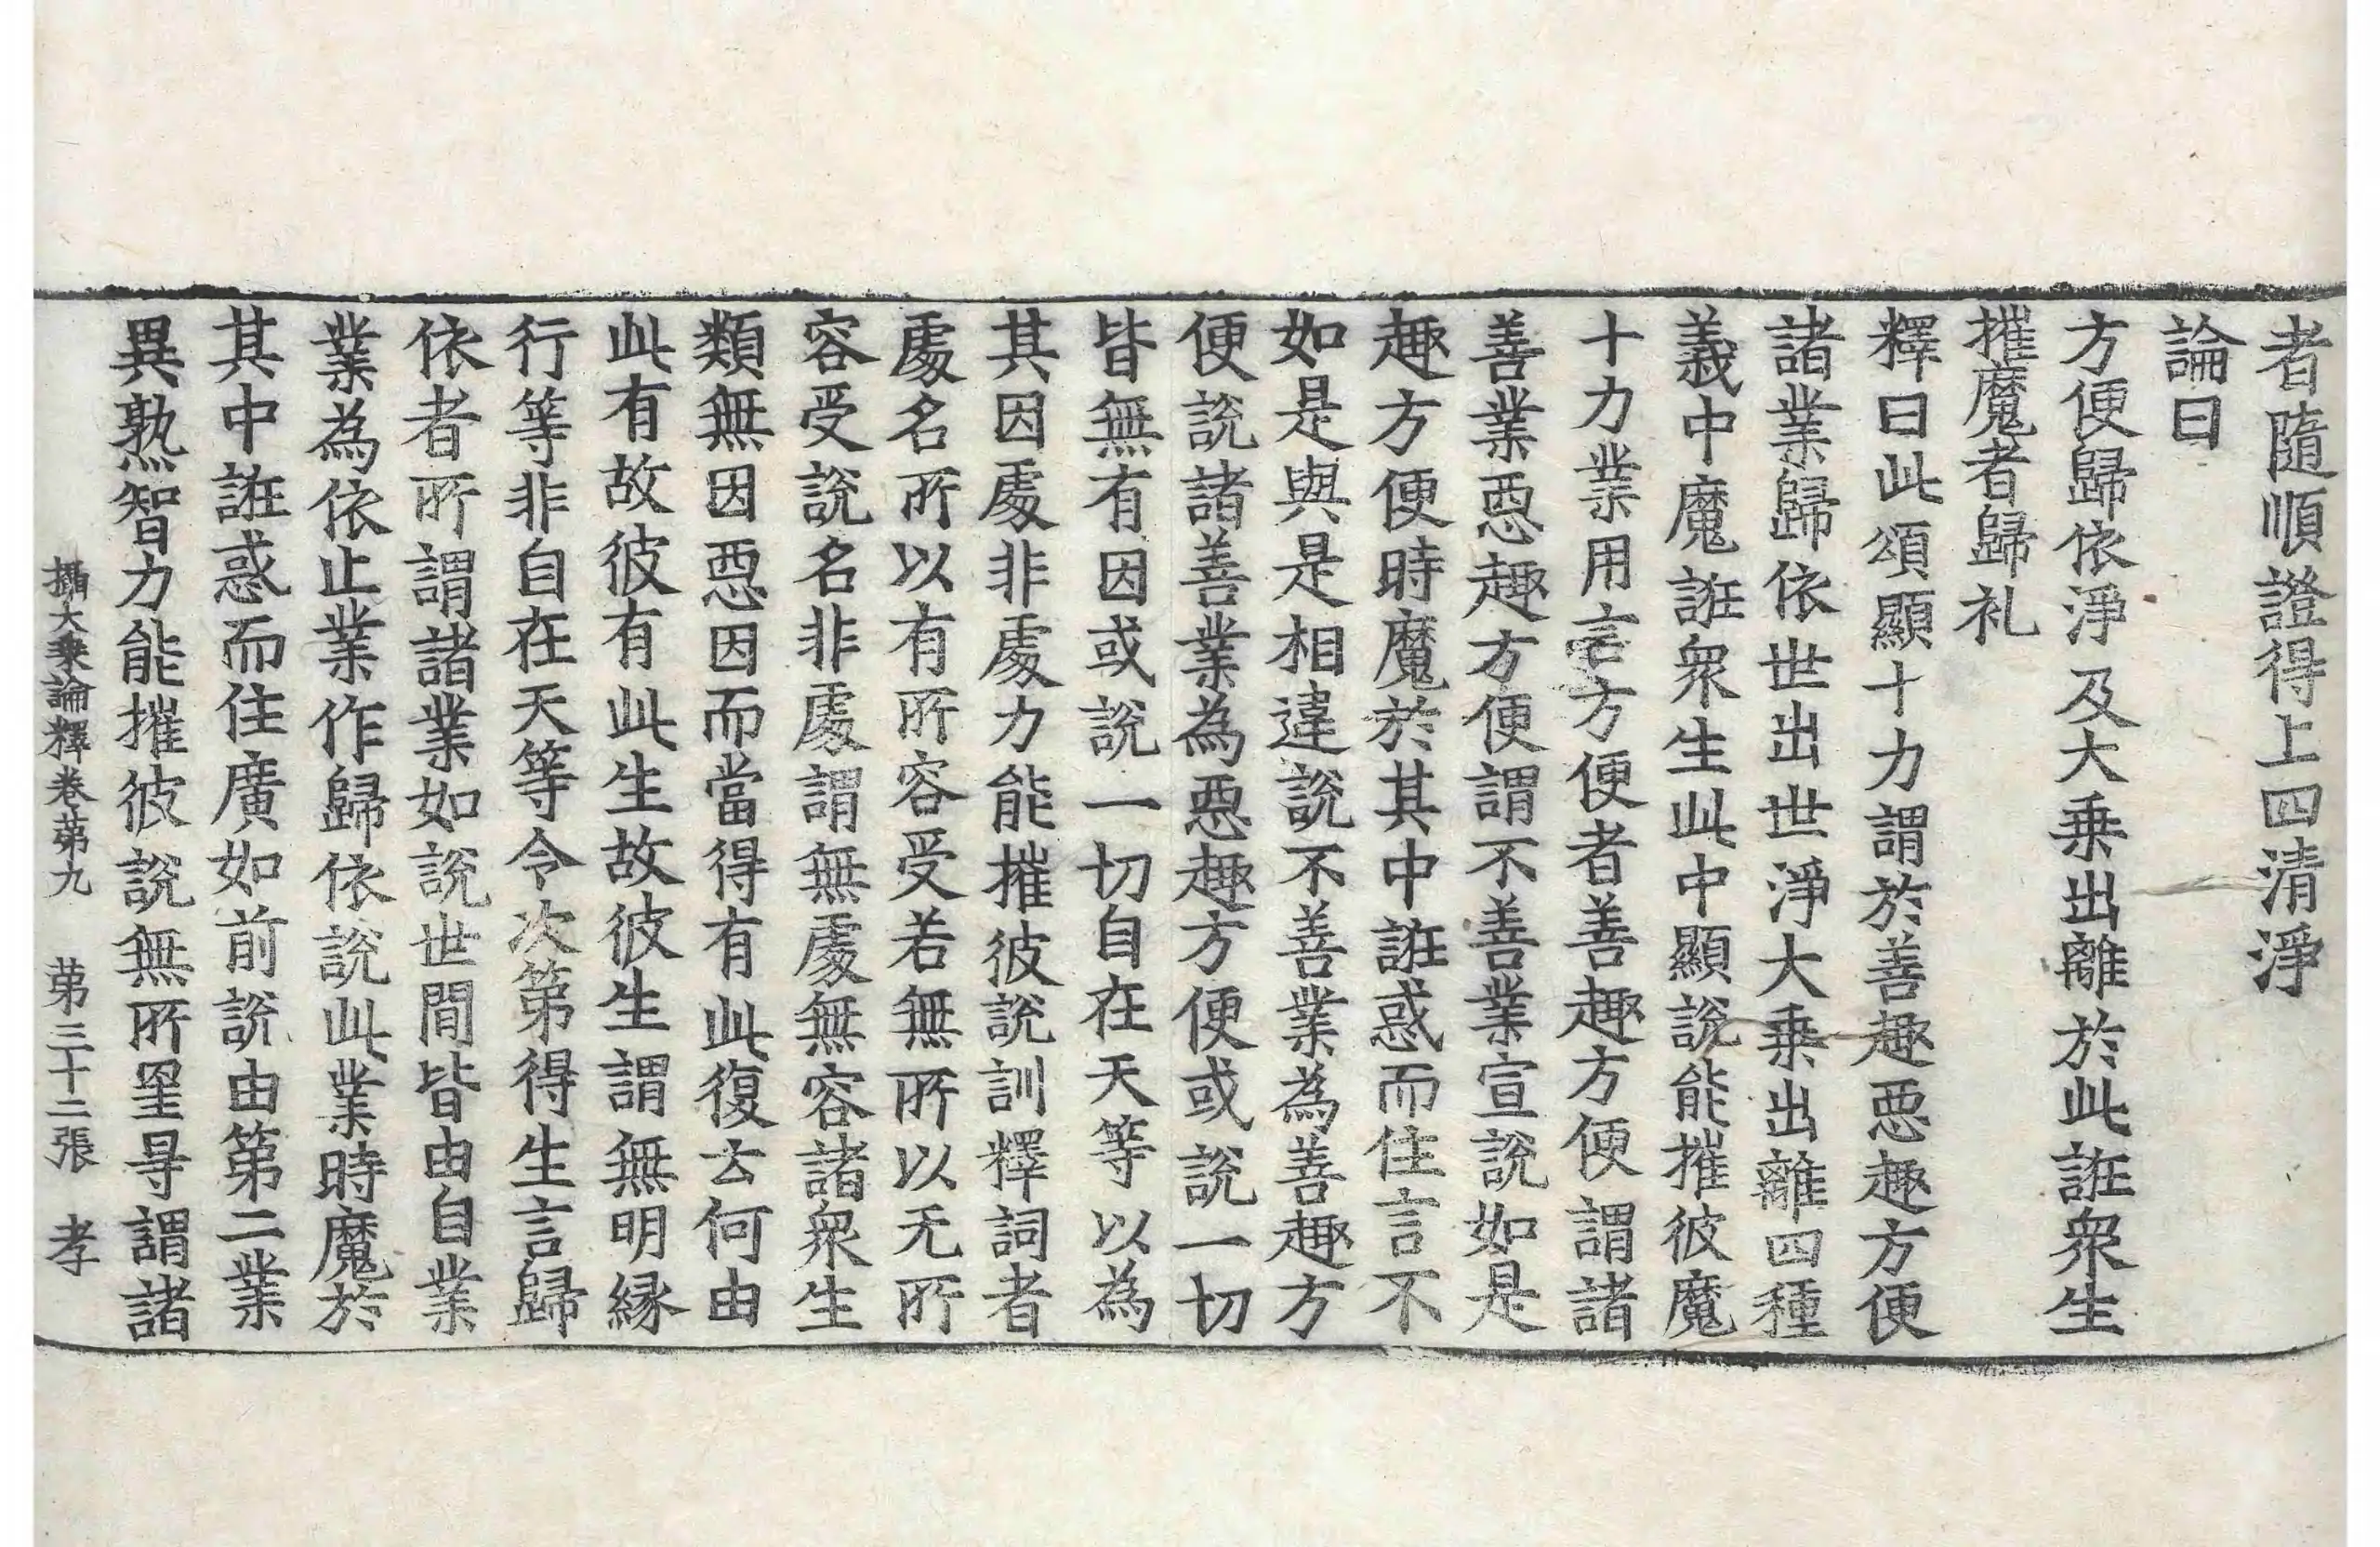 者隨順證得上四清淨
論曰
方便歸依淨及大乗出離於此誑衆生
摧魔者歸礼
釋曰此頌顯十力謂於善趣惡趣方便
諸業歸依世出世淨大乗出離四種
義中魔誑衆生此中顯說能摧彼魔
十力業用言方便者善趣方便謂諸
善業惡趣方便謂不善業宣說如是
趣方便時魔於其中誑惑而住言不
如是與是相違說不善業為善趣方
便說諸善業為惡趣方便或說一切
皆無有因或說一切自在天等以為
其因處非處力能摧彼說訓釋詞者
處名所以有所容受若無所以无所
容受說名非處謂無處無容諸衆生
類無因惡因而當得有此復云何由
此有故彼有此生故彼生謂無明縁
行等非自在天等令次第得生言歸
依者所謂諸業如說世間皆由自業
業為依止業作歸依說此業時魔於
其中誑惑而住廣如前說由第二業
異熟智力能摧彼說無所罣㝵謂諸
攝大乗論釋卷苐九 苐三十二張 孝